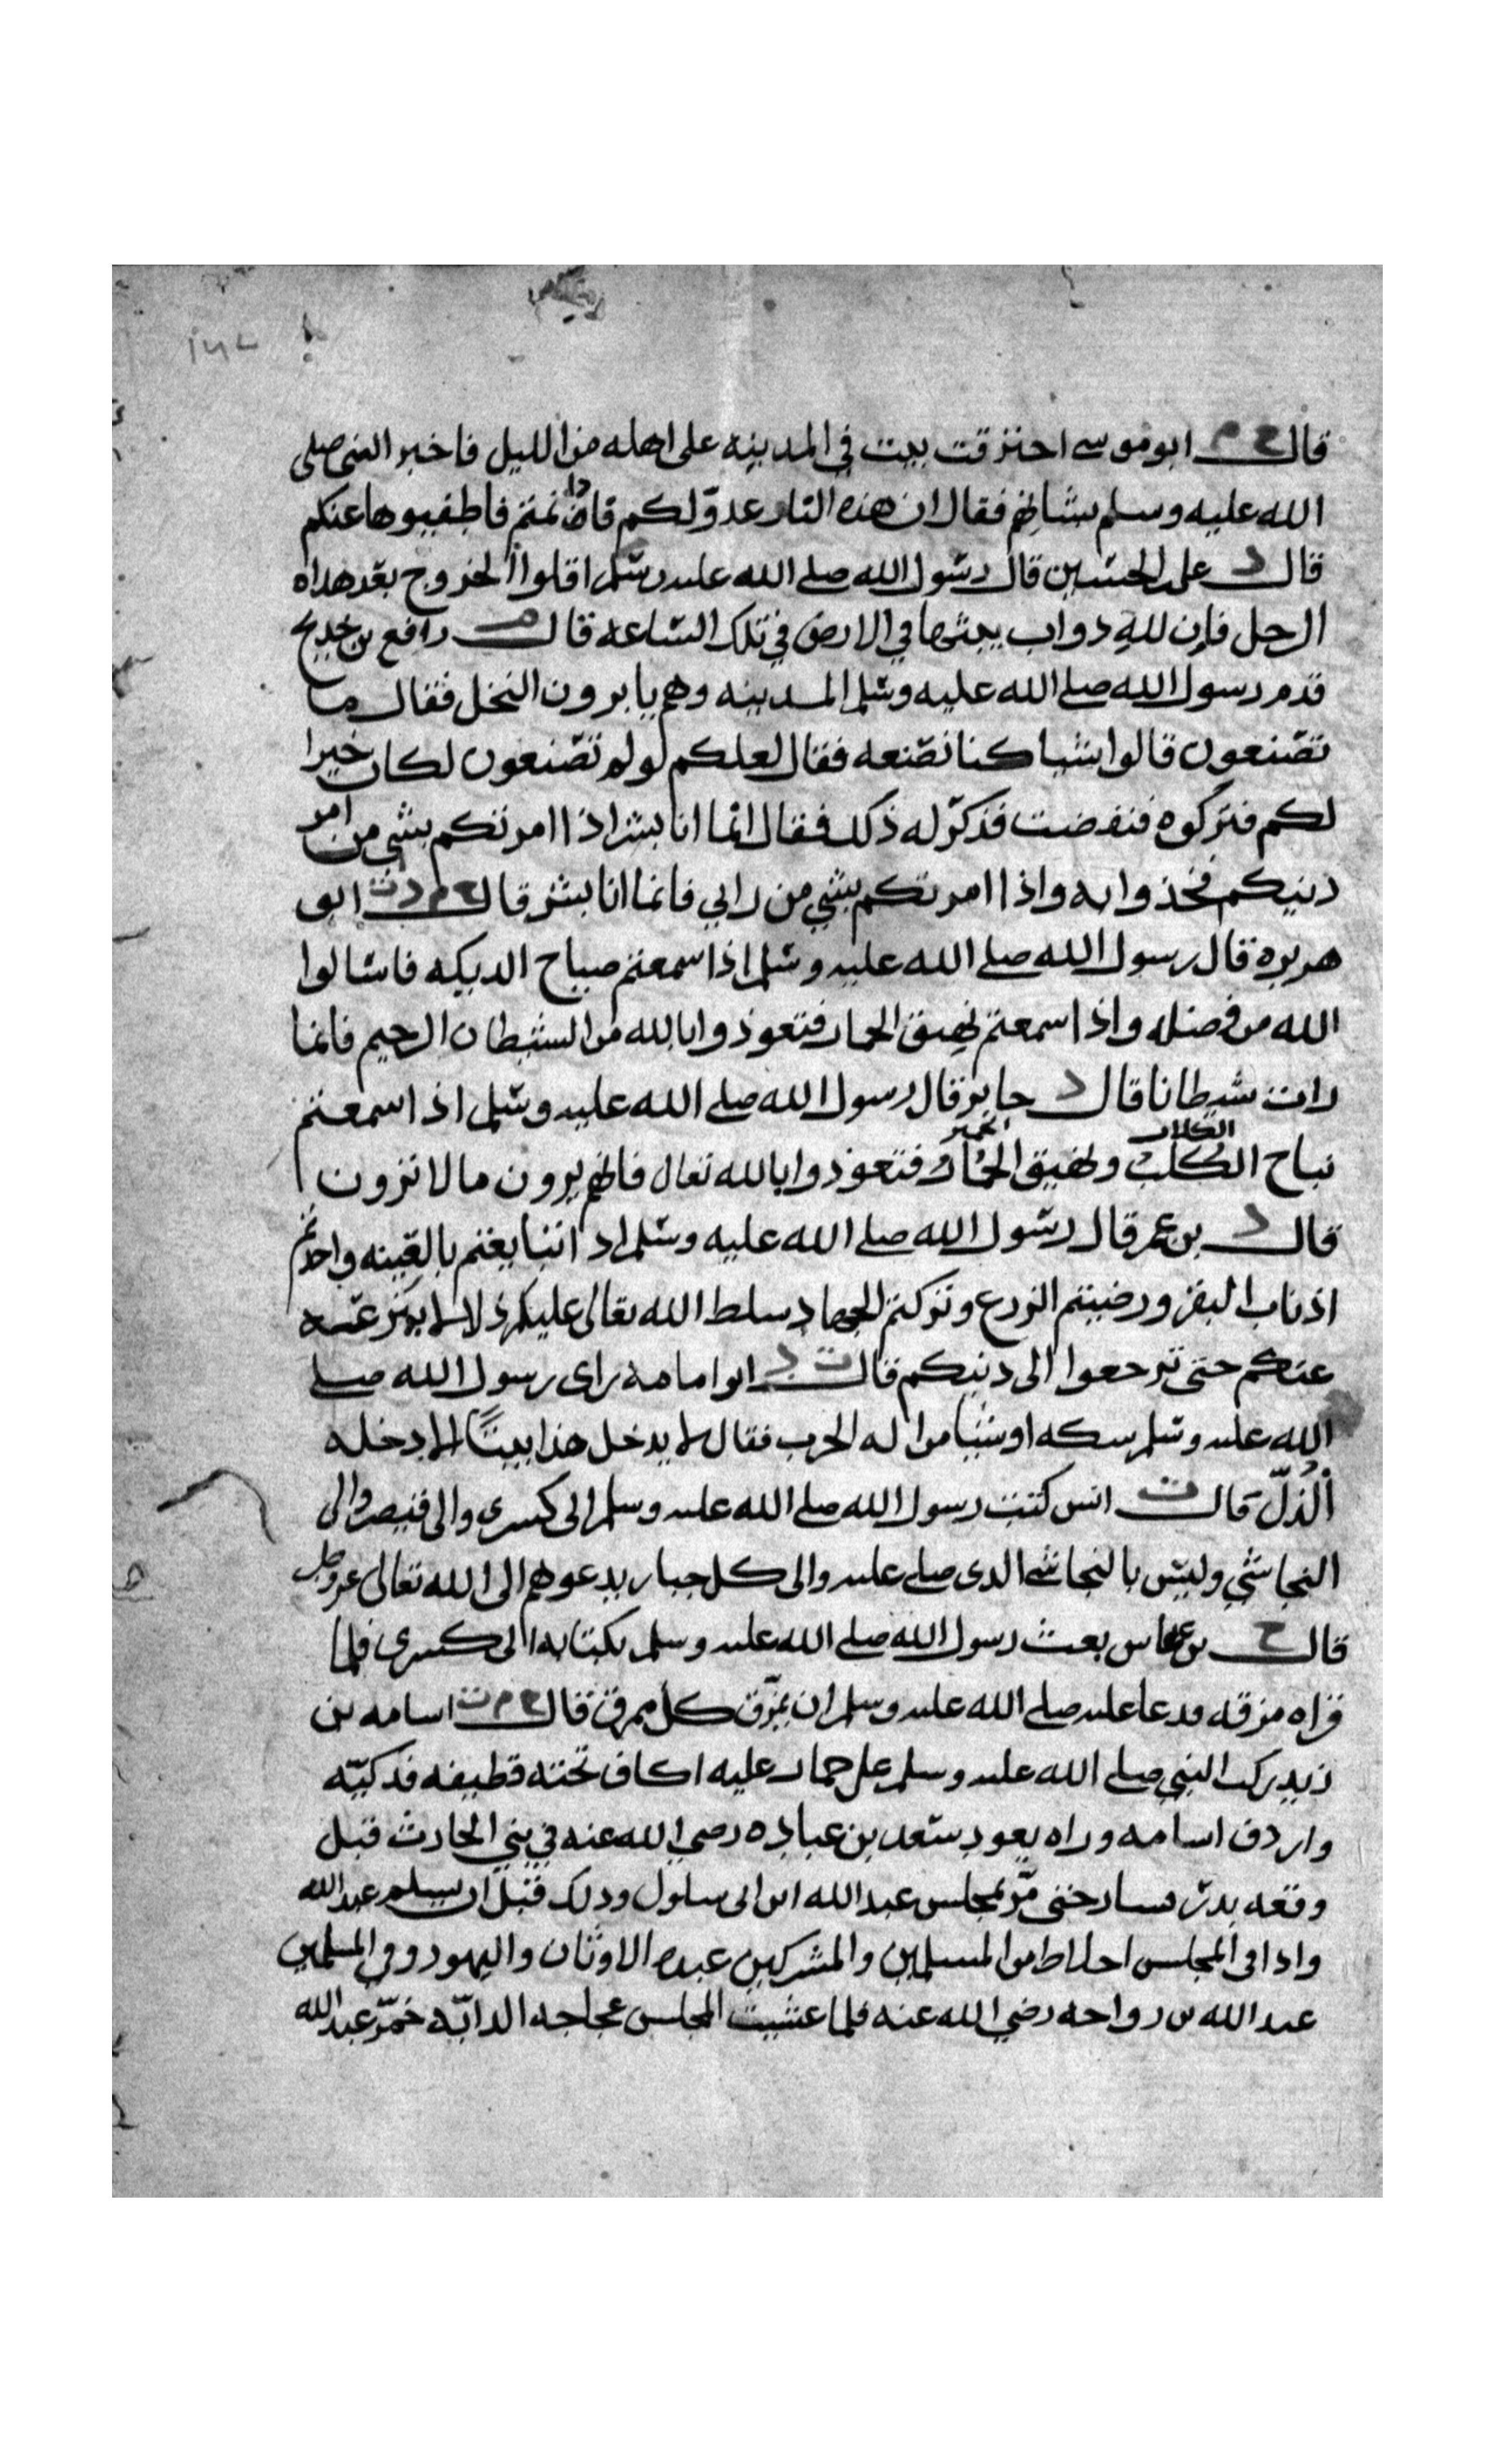 ١٤٧
قال خ م ابو موسى احترقت بيت في المدينه على اهله من الليل فاخبر النبي صلى
الله عليه وسلم بشانهم فقال ان هذه النار عدوّ لكم فاذا نمتم فاطفيوها عنكم
قال د على الحسين قال رسول الله صلى الله عليه وسلم اقلوا الخروج بعد هداه
الرجل فإن لله دواب يبثها في الارض في تلك الساعه قال م رافع بن خديج
قدم رسول الله صلى الله عليه وسلم المدينه وهم يابرون النخل فقال ما
تصنعون قالوا شيا كنا نصنعه فقال لعلكم لو لم تصنعون لكان خيرا
لكم فتركوه فنفضت فذكر له ذلك فقال انما انا بشر اذا امرتكم بشي من امر
دينكم فخذوا به واذا امرتكم بشي من رايي فانما انا بشر قال خ م د ت ابو
هريره قال رسول الله صلى الله عليه وسلم اذا سمعتم صياح الديكه فاسالوا
الله من فضله واذا سمعتم نهيق الحمار فتعوذوا بالله من الشيطان الرجيم فانما
رات شيطانا قال د جابر قال رسول الله صلى الله عليه وسلم اذا سمعتم
نباح الكلب الكلاب ونهيق الحمار الحمير فتعوذوا بالله تعالى فانهم يرون مالا ترون
قال د بن عمر قال رسول الله صلى الله عليه وسلم اذا تبايعتم بالعينه واخذتم
اذناب البقر ورضيتم الزرع وتركتم الجهاد سلط الله تعالى عليكم ذلا لا ينزعه
عنكم حتى ترجعوا الى دينكم قال ت د ابو امامه راى رسول الله صلى
الله عليه وسلم سكه او شيا من اله الحرب فقال لا يدخل هذا بيتًا الا دخله
الذُلّ قال ت انس كتب رسول الله صلى الله عليه وسلم الى كسرى والى قيصر والى
النجاشي وليس بالنجاشي الذى صلى عليه والى كل جبار يدعوهم الى الله تعالى عز وجل
قال خ بن عباس بعث رسول الله صلى الله عليه وسلم بكتابه الى كسرى فلما
قراه مزقه فدعا عليه صلى الله عليه وسلم ان يمزق كل ممزق قال خ م ت اسامه بن
زيد ركب النبي صلى الله عليه وسلم على حمار عليه اكاف تحته قطيفه فدكيّه
واردف اسامه وراه يعود سعد بن عباده رضي الله عنه في بني الحارث قبل
وقعه بدر فسار حتى مرّ بمجلس عبد الله ابن ابى سلول وذلك قبل ان يسلم عبد الله
واذا فى المجلس اخلاط من المسلمين والمشركين عبده الاوثان واليهود وفي المسلمين
عبد الله بن رواحه رضي الله عنه فلما غشيت المجلس عجاجه الدابّه خمّر عبد الله